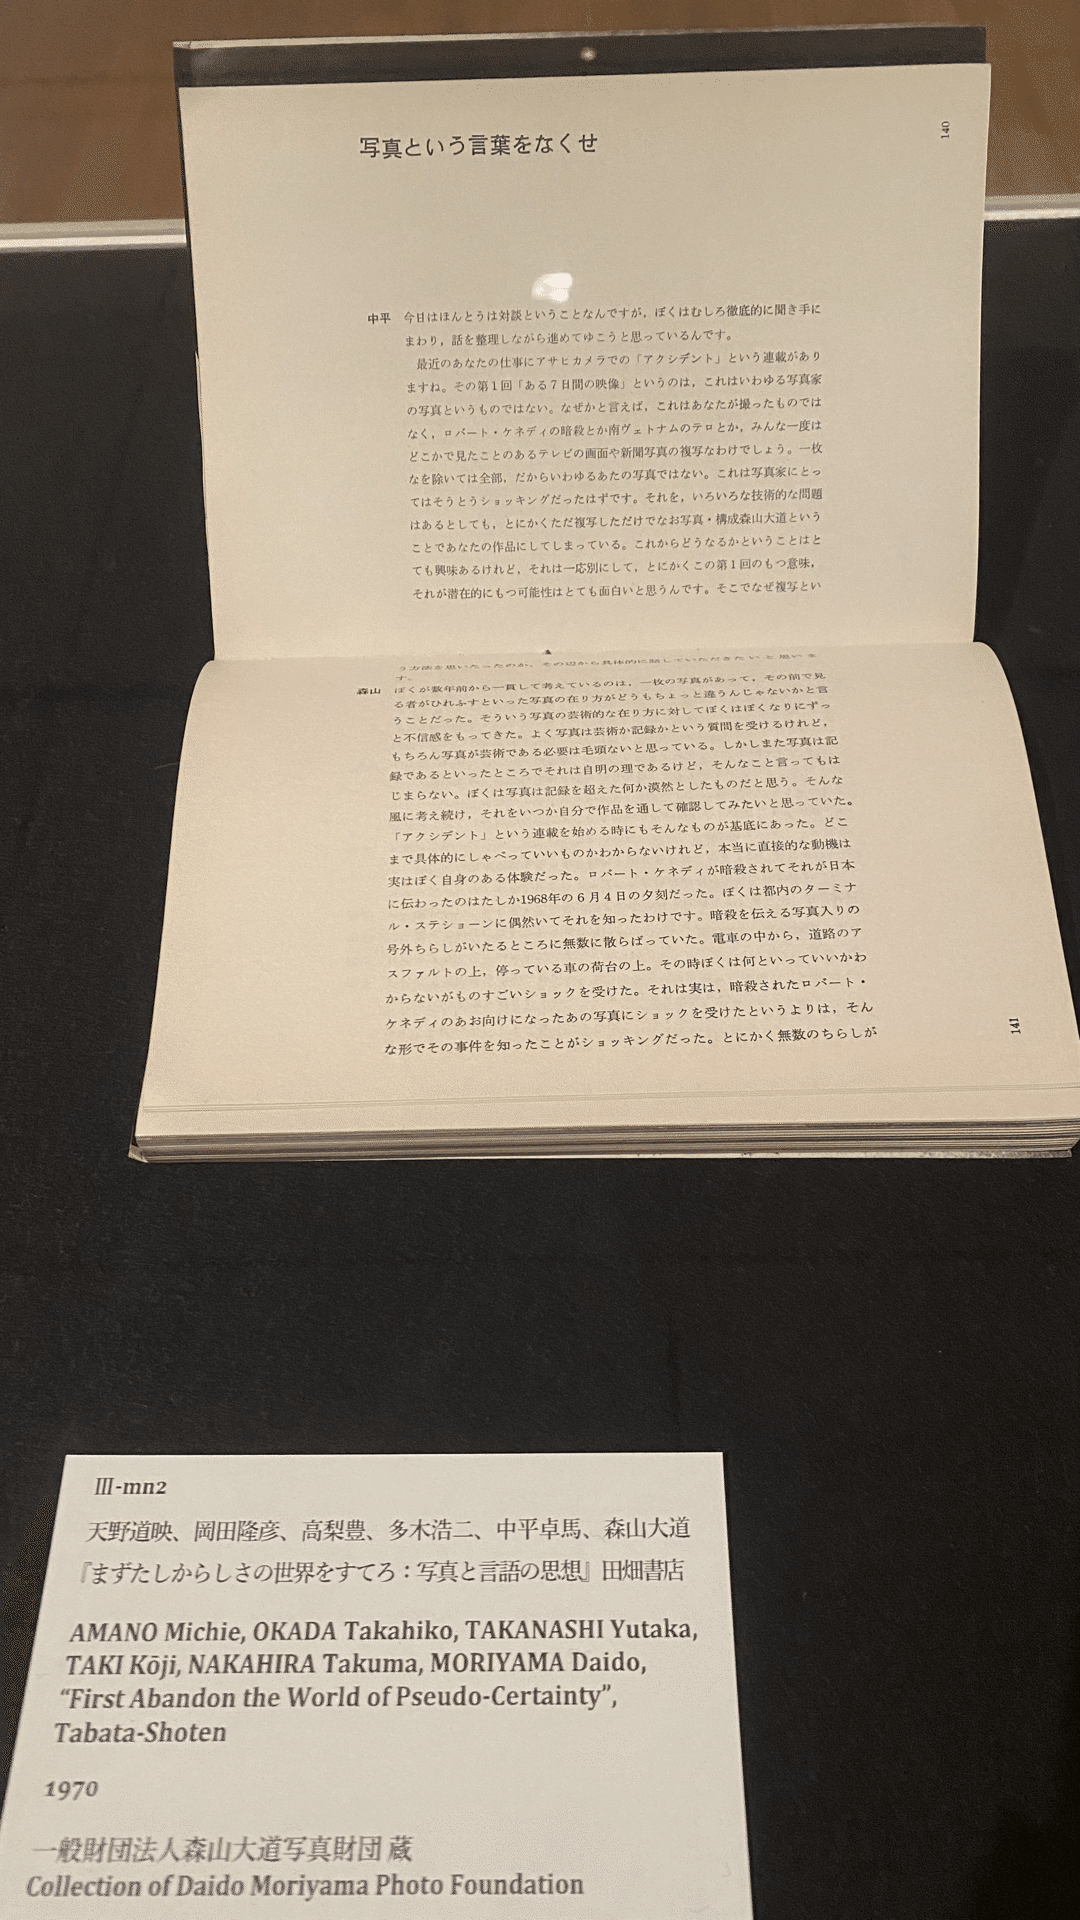 140
写真という言葉をなくせ
中平 今日はほんとうは対談ということなんですが，ぼくはむしろ徹底的に聞き手に
まわり，話を整理しながら進めてゆこうと思っているんです。
最近のあなたの仕事にアサヒカメラでの「アクシデント」という連載があり
ますね。その第1回「ある7日間の映像」というのは，これはいわゆる写真家
の写真というものではない。なぜかと言えば，これはあなたが撮ったものでは
なく，ロバート・ケネディの暗殺とか南ヴェトナムのテロとか，みんな一度は
どこかで見たことのあるテレビの画面や新聞写真の複写なわけでしょう。一枚
なを除いては全部，だからいわゆるあたの写真ではない。これは写真家にとっ
てはそうとうショッキングだったはずです。それを，いろいろな技術的な問題
はあるとしても，とにかくただ複写しただけでなお写真・構成森山大道という
ことであなたの作品にしてしまっている。これからどうなるかということはと
ても興味あるけれど，それは一応別にして，とにかくこの第1回のもつ意味，
それが潜在的にもつ可能性はとても面白いと思うんです。そこでなぜ複写とい
う方法を思いたったのか，その辺から具体的に話していただきたいと思いま
す。
森山 ぼくが数年前から一貫して考えているのは，一枚の写真があって，その前で見
る者がひれふすといった写真の在り方がどうもちょっと違うんじゃないかと言
うことだった。そういう写真の芸術的な在り方に対してぼくはぼくなりにずっ
と不信感をもってきた。よく写真は芸術か記録かという質問を受けるけれど，
もちろん写真が芸術である必要は毛頭ないと思っている。しかしまた写真は記
録であるといったところでそれは自明の理であるけど，そんなこと言ってもは
じまらない。ぼくは写真は記録を超えた何か漠然としたものだと思う。そんな
風に考え続け，それをいつか自分で作品を通して確認してみたいと思っていた。
「アクシデント」という連載を始める時にもそんなものが基底にあった。どこ
まで具体的にしゃべっていいものかわからないけれど，本当に直接的な動機は
実はぼく自身のある体験だった。ロバート・ケネディが暗殺されてそれが日本
に伝わったのはたしか1968年の6月4日の夕刻だった。ぼくは都内のターミナ
ル・ステショーンに偶然いてそれを知ったわけです。暗殺を伝える写真入りの
号外ちらしがいたるところに無数に散らばっていた。電車の中から，道路のア
スファルトの上，停っている車の荷台の上。その時ぼくは何といっていいかわ
からないがものすごいショックを受けた。それは実は，暗殺されたロバート・
ケネディのあお向けになったあの写真にショックを受けたというよりは，そん
な形でその事件を知ったことがショッキングだった。とにかく無数のちらしが
141
Ⅲ-mn2
天野道映、岡田隆彦、高梨豊、多木浩二、中平卓馬、森山大道
『まずたしからしさの世界をすてろ：写真と言語の思想』田畑書店
AMANO Michie, OKADA Takahiko, TAKANASHI Yutaka,
TAKI Kōji, NAKAHIRA Takuma, MORIYAMA Daido,
“First Abandon the World of Pseudo-Certainty”,
Tabata-Shoten
1970
一般財団法人森山大道写真財団 蔵
Collection of Daido Moriyama Photo Foundation